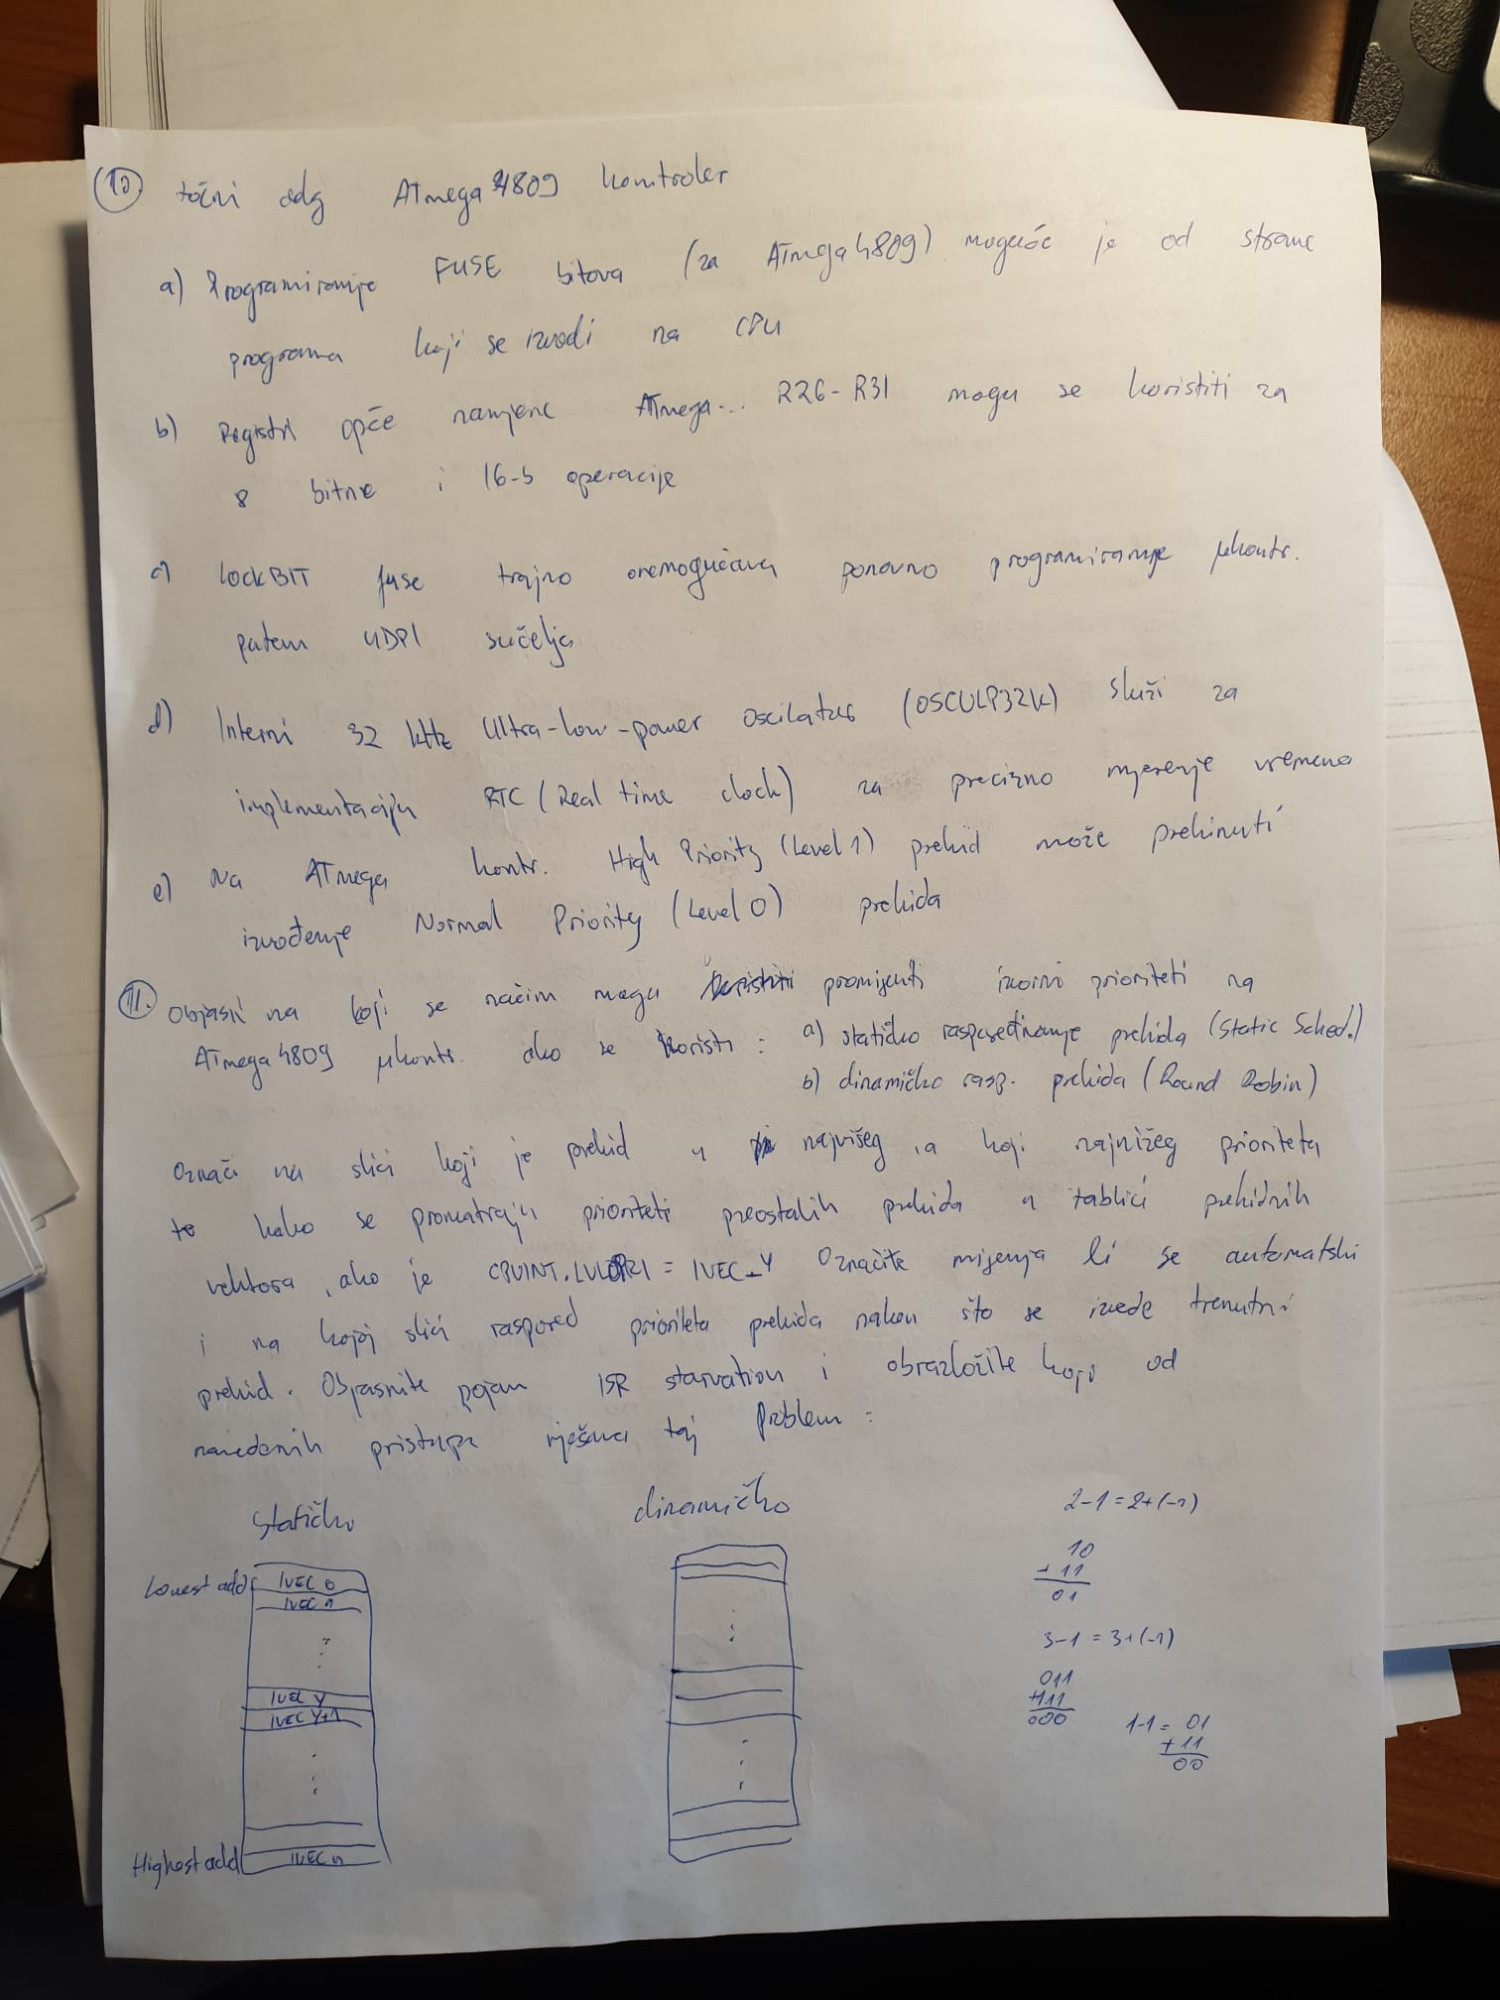 10 točni odg ATmega 4809 kontroler
a) Programiranje FUSE bitova (za ATmega 4809) moguće je od strane
programa koji se izvodi na CPU
b) Registri opće namjene ATmega... R26-R31 mogu se koristiti za
8 bitne i 16-b operacije
c) LockBIT fuse trajno onemogućava ponovno programiranje μkontr.
putem UDPI sučelja
d) Interni 32 kHz Ultra-low-power oscilator (OSCULP32K) služi za
implementaciju RTC (Real time clock) za precizno mjerenje vremena
e) Na ATmega kontr. High Priority (Level 1) prekid može prekinuti
izvođenje Normal Priority (Level 0) prekida
11. Objasni na koji se način mogu promijeniti izvorni prioriteti na
ATmega 4809 μkontr. ako se koristi : a) statičko raspoređivanje prekida (Static Sched.)
b) dinamičko rasp. prekida (Round Robin)
Označi na slici koji je prekid u najvišeg , a koji najnižeg prioriteta
te kako se promatraju prioriteti preostalih prekida u tablici prekidnih
vektora , ako je CPUINT.LVL0PRI = IVEC_Y Označite mijenja li se automatski
i na kojoj slici raspored prioriteta prekida nakon što se izvede trenutni
prekid. Objasnite pojam ISR starvation i obrazložite koji od
navedenih pristupa rješava taj problem :
statičko dinamičko 2-1 = 2+(-1)
Lowest add IVEC 0
IVEC 1
10
+ 11
01
3-1 = 3+(-1)
011
+111
000
IVEC Y
IVEC Y+1
1-1 = 01
+ 11
00
Highest add IVEC n